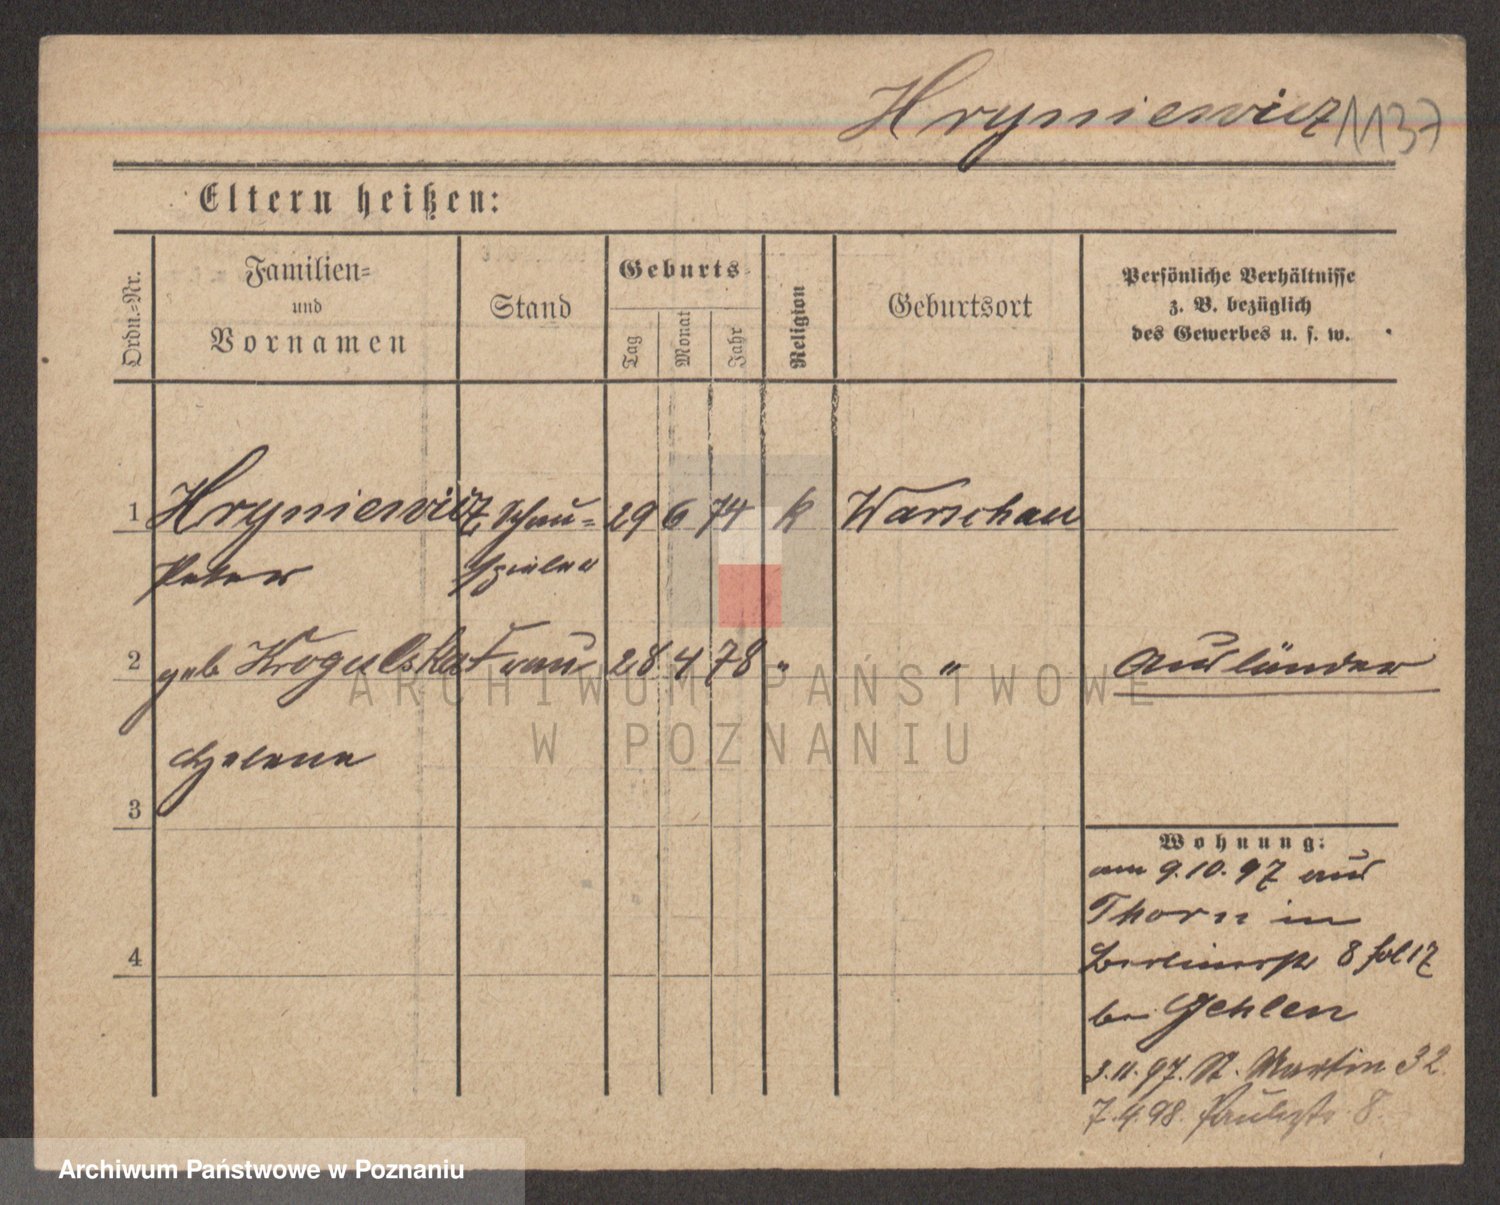 Hryniewicz 1137
Eltern heißen:
Ordn.=Nr.
Familien=
und
Vornamen
Stand
Geburts=
Tag
Monat
Jahr
Religion
Geburtsort
Persönliche Verhältnisse
z. B. bezüglich
des Gewerbes u. s. w.
1 Hryniewicz Schau= 29 6 74 k Warschau
Peter Spieler
2 geb Krogulska Frau 28 4 78 " " Ausländer
Helene
3
Wohnung:
am 9.10.97 aus
Thorn in
Berlinerstr 8 fol 17
4
bei Gehlen
3.11.97. St. Martin 32.
7.4.98. Paulistr 8.
ARCHIWUM PAŃSTWOWE
W POZNANIU
Archiwum Państwowe w Poznaniu